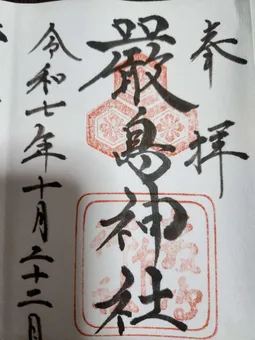 奉拝
嚴島神社
令和七年十月二十二日